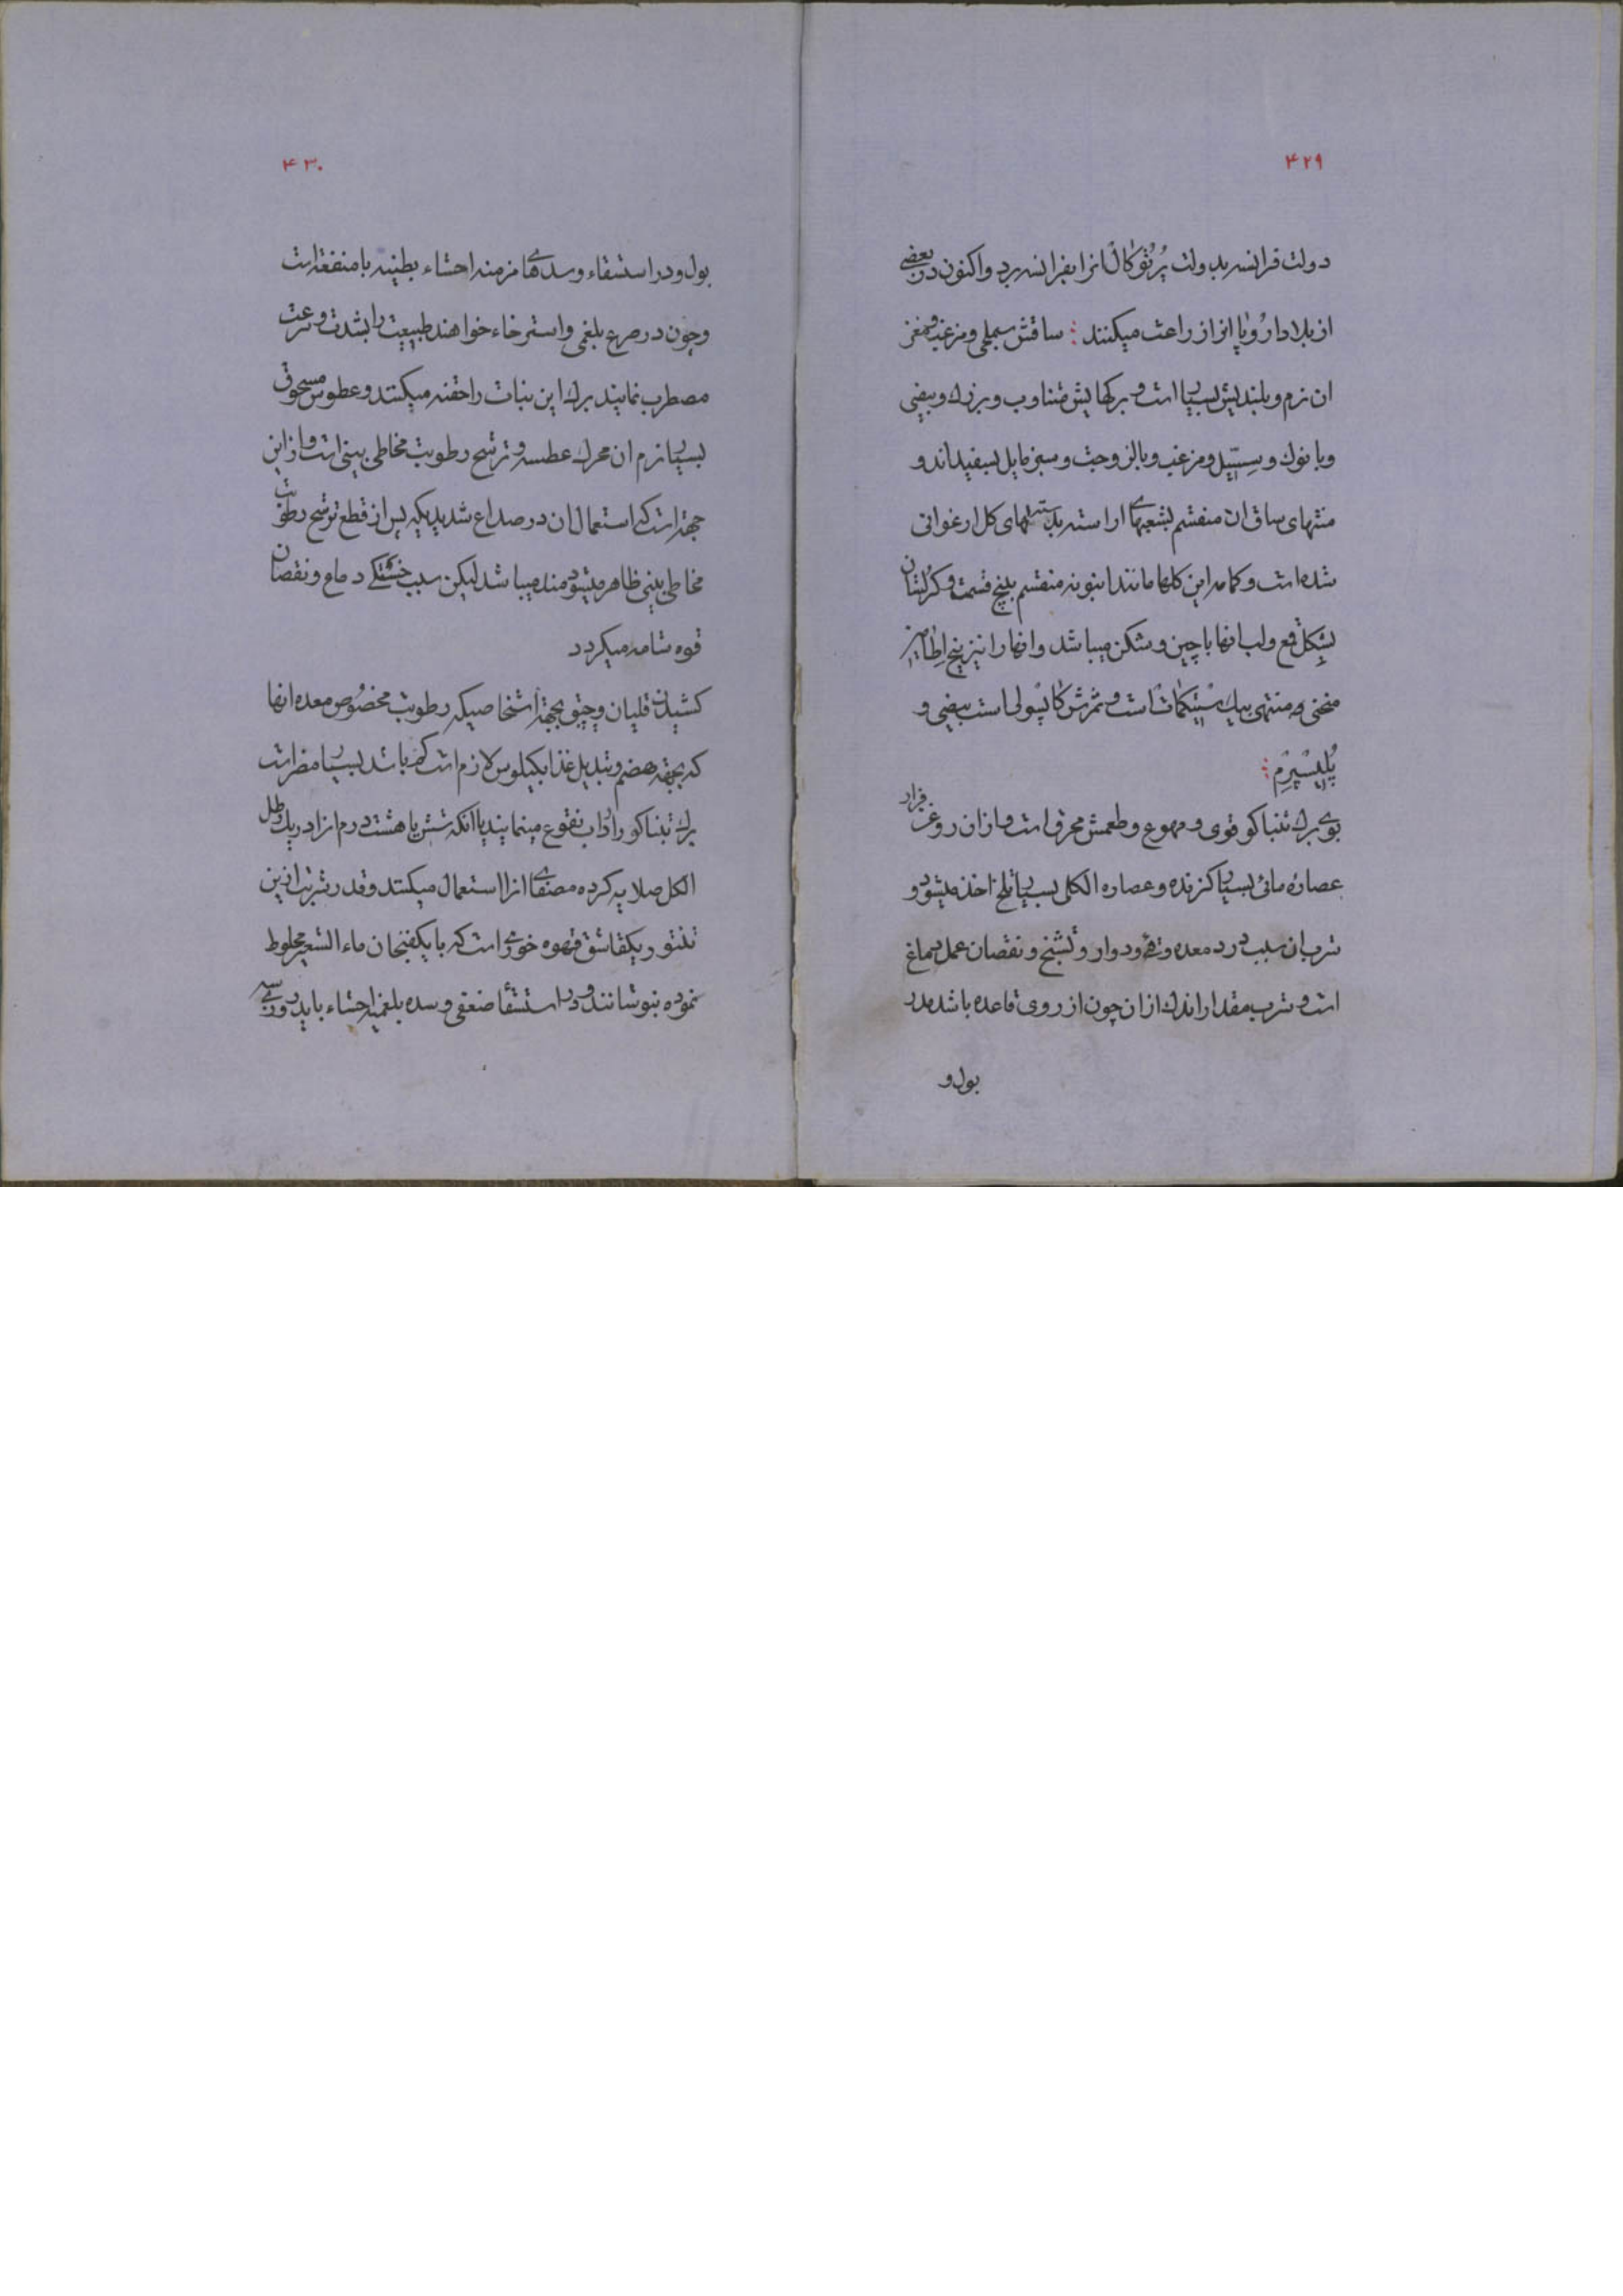 ۴۲۹
دولت فرانسه بدولت پُرتُوکال انرا بفرانسه برد واکنون در بعضی
از بلاد ارُوپا انرا زراعت میکنند : ساقش سملی ومزغب ومغز
ان نرم وبلندیش بسیار است وبرکهایش متناوب وبزرک وبیضی
وبا نوک وسِسّیل ومزغب وبالزوجت وسبز مایل بسفیداند و
منتهای ساق ان منقسم بشعبهای اراسته بدستهای کل ارغوانی
شده است وکاسه این کلها مانند انبوبه منقسم بپنج قسمت وکرُلشان
بشکل قمع ولب انها با چین وشکن میباشد وانها را نیز پنج اِطامین
منحنی ومنتهی بیک سْتیکمات است وثمرش کاپسولی است بیضی و
پُلیسْپِرم :
بوی برک تنباکو قوی ومهوع وطعمش محرق است واز ان روغن فرار
عصارهٔ مائی بسیار کزنده وعصاره الکلی بسیار تلخ اخذ میشود و
شرب ان سبب درد معده وقی ودوار وتشنج ونقصان عمل دماغ
است وشرب مقدار اندک از ان چون از روی قاعده باشد مدر
بول و
۴۳۰
بول ودر استسقاء وسدهای مزمنه احشاء بطنیه با منفعة است
وچون در صرع بلغمی واسترخاء خواهند طبیعت را بشدت وسرعت
مضطرب نمایند برک این نبات را حقنه میکنند وعطوس مسحوق
بسیار نرم ان محرک عطسه وترشح رطوبت مخاطی بینی است واز این
جهة است که استعمال ان در صداع شدیدیکه پس از قطع ترشح رطوبت
مخاطی بینی ظاهر میشود سودمند میباشد لیکن سبب خشکی دماغ ونقصان
قوه شامه میکردد
کشیدن قلیان وچپق بجهة اشخاصیکه رطوبت مخصُوص معده انها
که بجهة هضم وتبدیل غذا بکیلوس لازم است کم باشد بسیار مضر است
برک تنباکو را در اب نقوع مینمایند یا انکه شش یا هشت درم انرا در یک رطل
الکل صلایه کرده مصفای انرا استعمال میکنند وقدر شربت از ین
تنتور یکقاشق قهوه خوری است که با یکفنجان ماء الشعیر مخلوط
نموده بنوشانند ودر استسقا ضعفی وسده بلغمیه احشاء باید دو سه